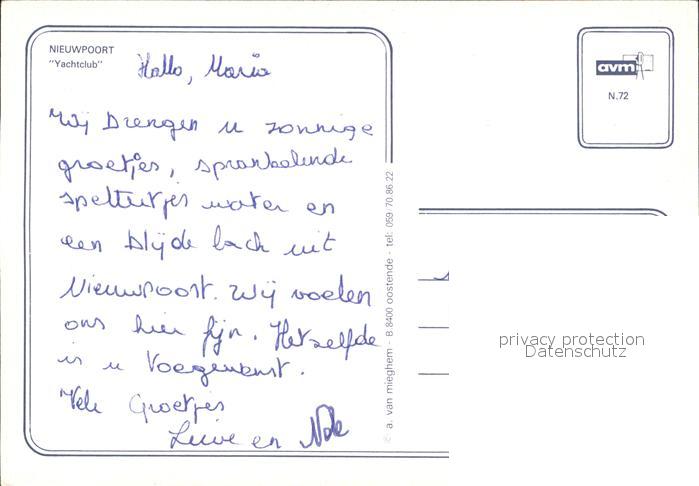 NIEUWPOORT
"Yachtclub"
Hallo, Maria
Wij brengen u zonnige
groetjes, sprankelende
spettertjes water en
een blijde lach uit
Nieuwpoort. Wij voelen
ons hier fijn. Hetzelfde
is u toegewenst.
Vele Groetjes
Lieve en
avm
N.72
a. van mieghem - B.8400 oostende - tel: 059/70.86.22
privacy protection
Datenschutz